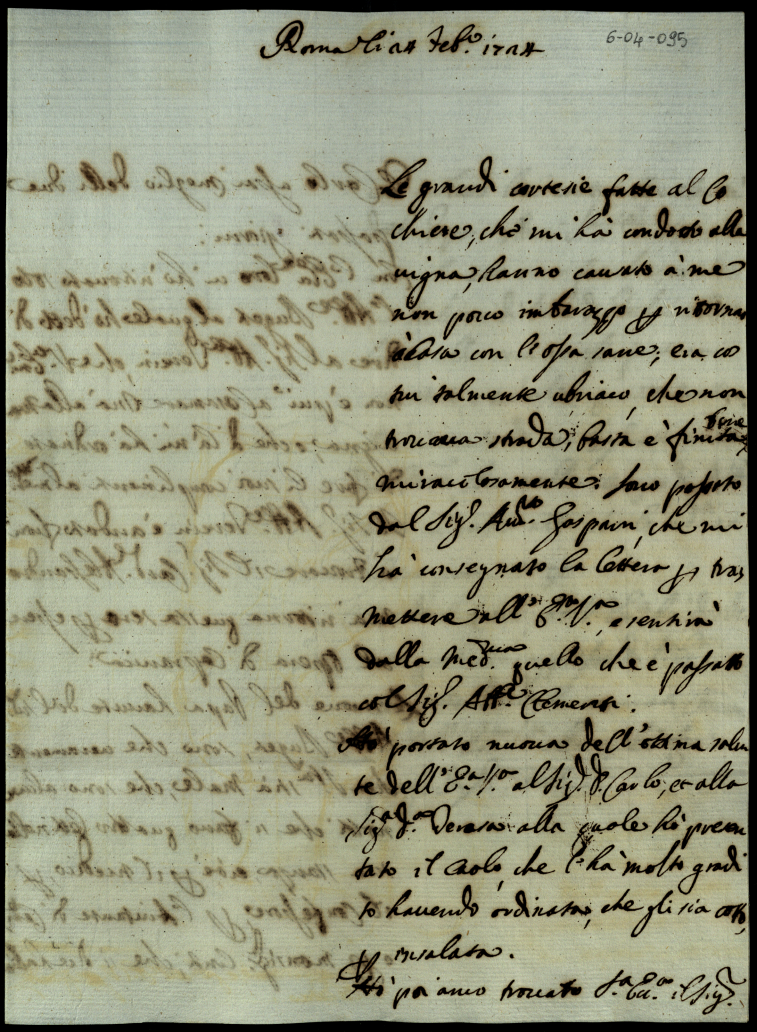 6-04-095
Roma li 24 Feb.º 1724
Le grandi cortesie fatte al Co
chiere, che mi hà condotto alla
vigna, hanno causato à me
non poco imbarazzo per ritornar
à casa con l'ossa sane; era co
sui talmente ubriaco, che non
trovava strada, basta è finita bene
miracolosamente. Sono passato
dal Sig.r Aud.re Gasparri, che mi
hà consegnato la lettera per tras
mettere all' E.ma V.ra, e sentirà
dalla med.ma quello che è passato
col Sig.r Abb.e Clementi.
Hò portato nuova dell'ottima salu
te dell' E.a V.ra al Sig.r D. Carlo, et alla
Sig.ra D.a Teresa alla quale hò presen
tato il caolo, che l'hà molto gradi
to havendo ordinato, che gli sia cotto
per insalata.
Hò poi anco trovato S.a Ecc.a il Sig.r